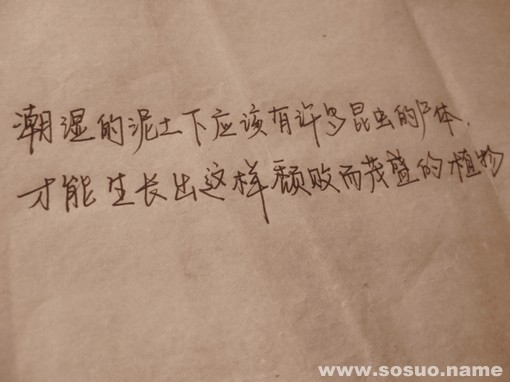 潮湿的泥土下应该有许多昆虫的尸体.
才能生长出这样颓败而茂盛的植物
www.sosuo.name